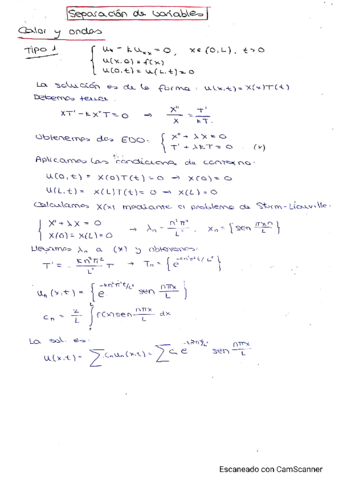 Separación de variables
Calor y ondas
Tipo 1 { u_t - k u_xx = 0, x ∈ (0,L), t > 0
u(x,0) = f(x)
u(0,t) = u(L,t) = 0
La solución es de la forma: u(x,t) = X(x)T(t)
Debemos tener:
XT' - kX''T = 0 ⇒ X''/X = T'/kT
Obtenemos dos EDO: { X'' + λX = 0
T' + λkT = 0 . (*)
Aplicamos las condiciones de contorno:
u(0,t) = X(0)T(t) = 0 → X(0) = 0
u(L,t) = X(L)T(t) = 0 → X(L) = 0
Calculamos X(x) mediante el problema de Sturm-Liouville:
{ X'' + λX = 0
X(0) = X(L) = 0 → λ_n = n²π²/L² . X_n = {sen πxn/L}
Llevamos λ_n a (*) y obtenemos:
T' = - kn²π²/L² T → T_n = {e^(-kn²π²t/L²)}
u_n(x,t) = {e^(-kn²π²t/L²) sen nπx/L}
c_n = 2/L ∫ f(x) sen nπx/L dx
La sol. es:
u(x,t) = ∑ c_n u_n(x,t) = ∑ c_n e sen nπx/L
Escaneado con CamScanner